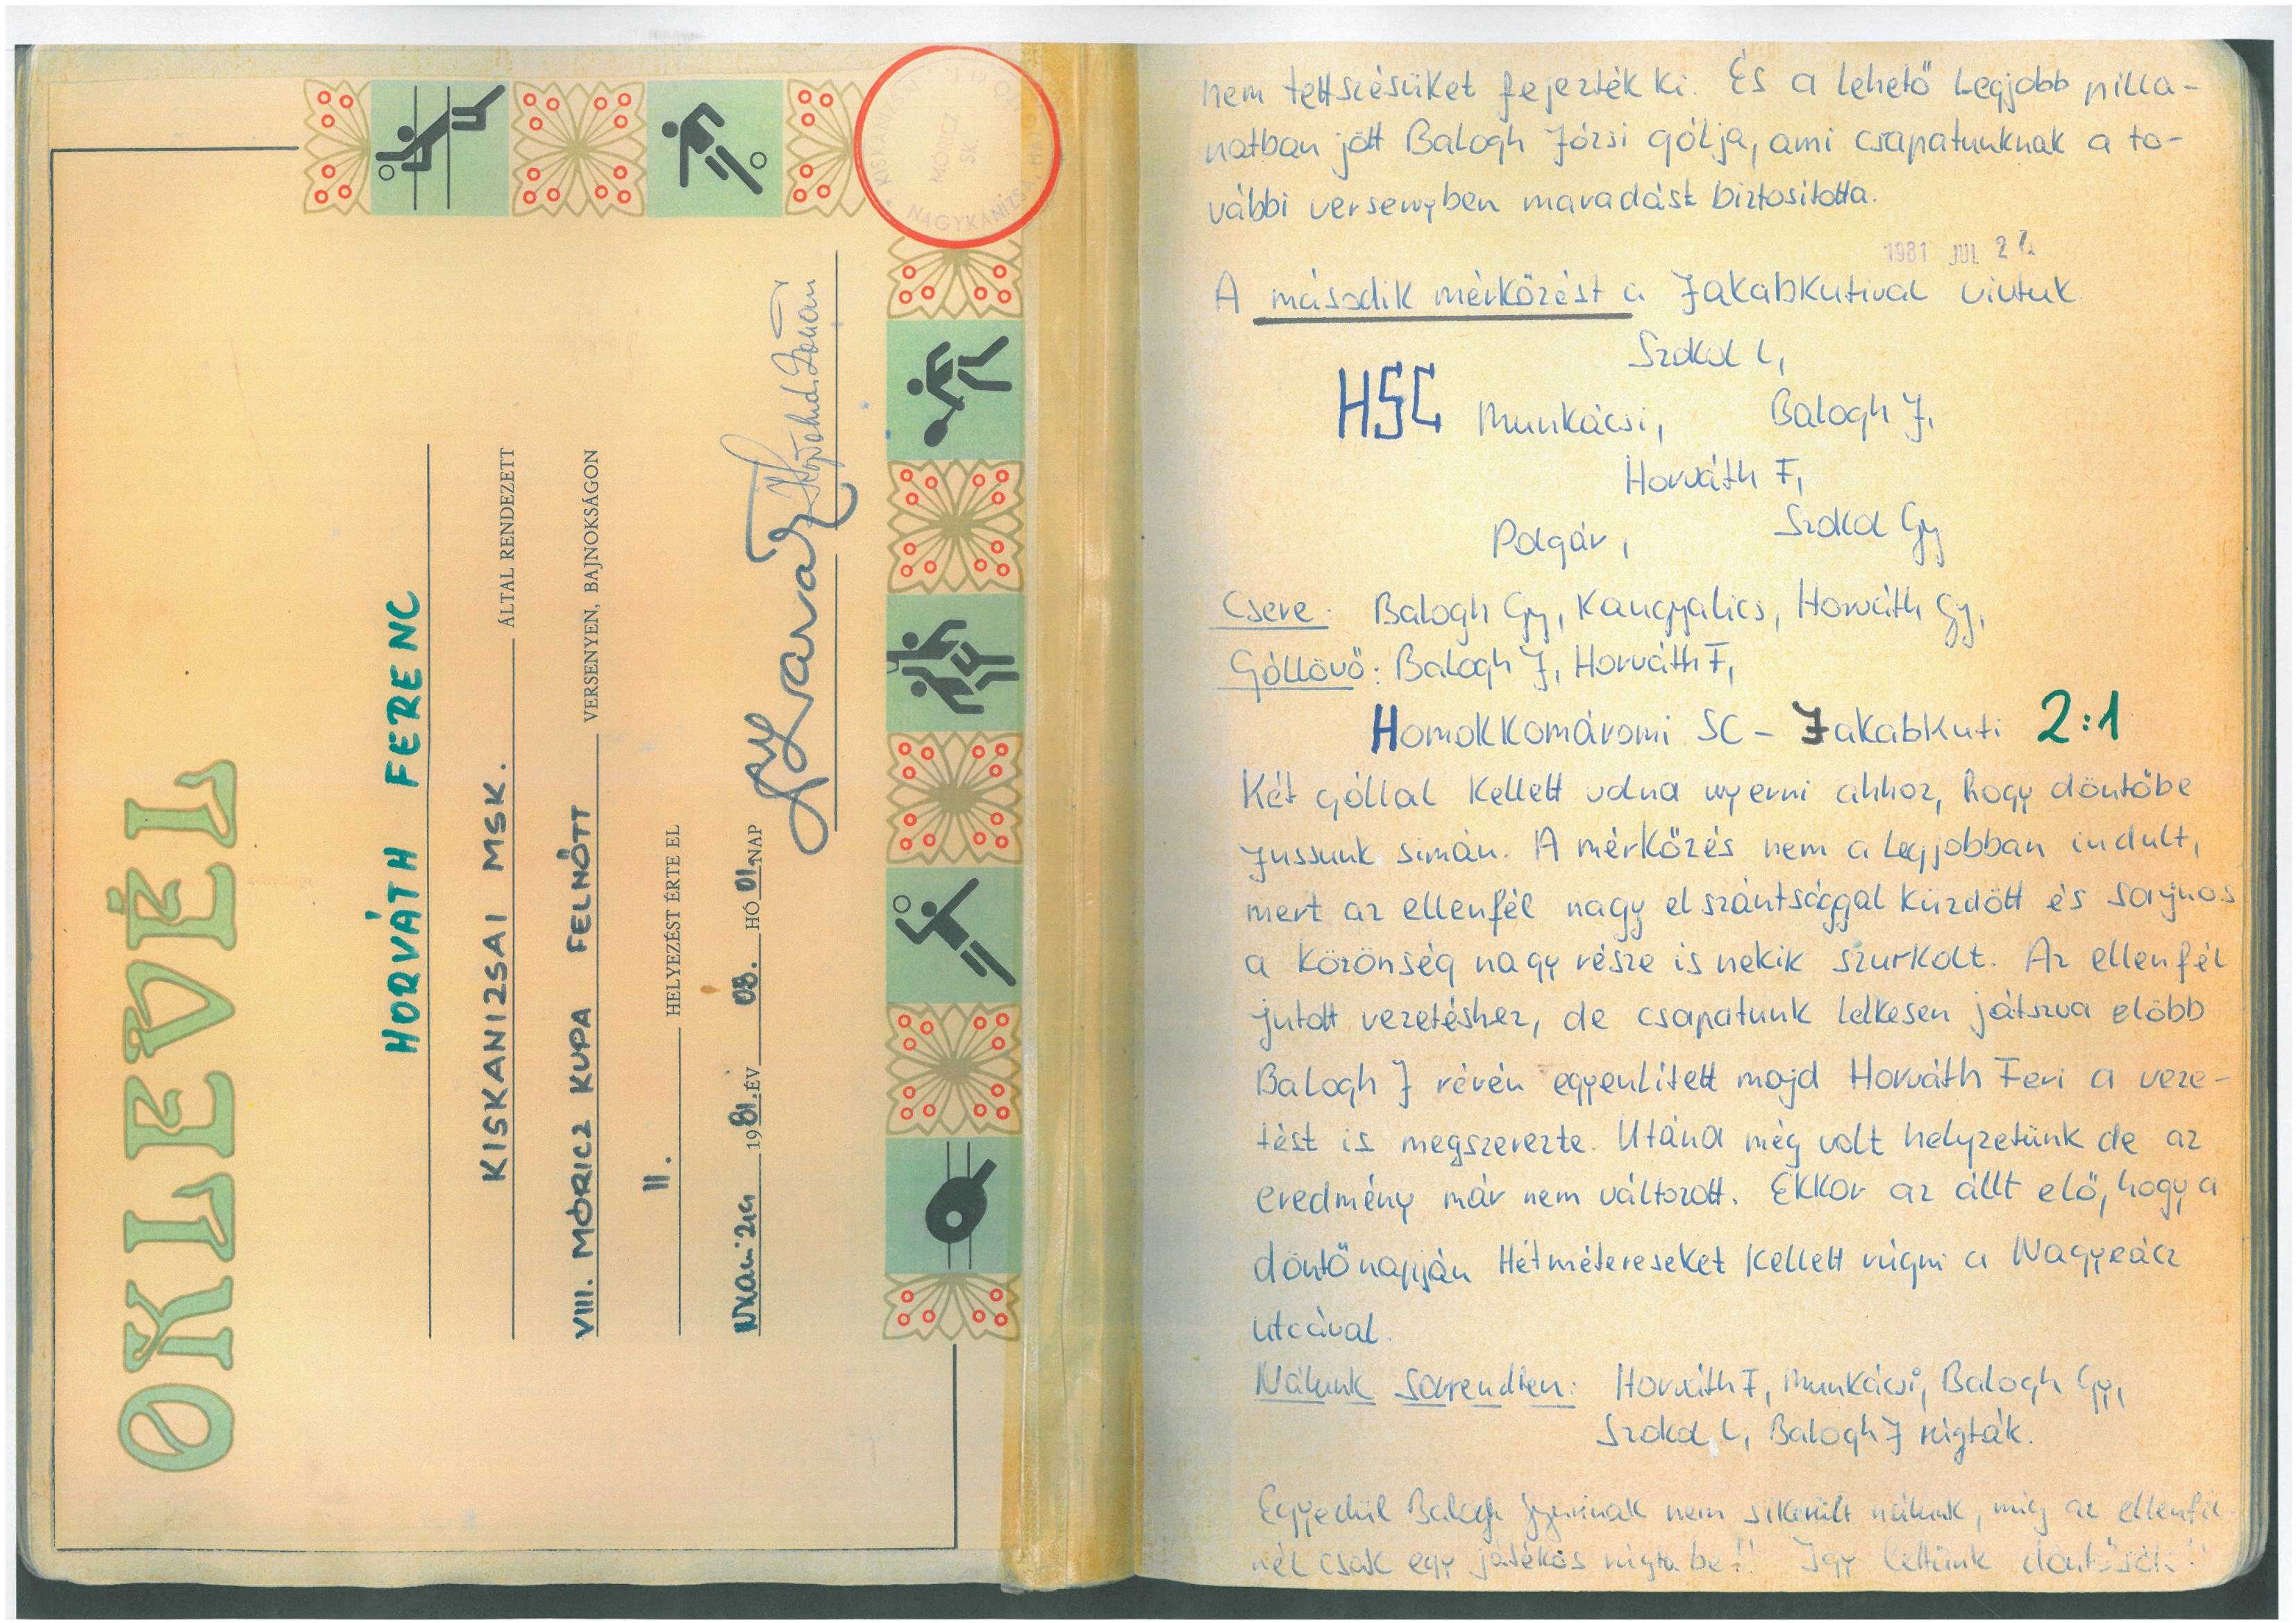 OKLEVÉL
HORVÁTH FERENC
KISKANIZSAI MSK. ÁLTAL RENDEZETT
VIII. MÓRICZ KUPA FELNŐTT VERSENYEN, BAJNOKSÁGON
II. HELYEZÉST ÉRTE EL
NKanizsa 1981. ÉV 08. HÓ 01. NAP
MÓRICZ
SK.
NAGYKANIZSA
nem tettszésüket fejezték ki. És a lehető legjobb pilla-
natban jött Balogh Józsi gólja, ami csapatunknak a to-
vábbi versenyben maradást biztosította.
1981 JUL 27.
A második mérkőzést a Jakabkutival vivtuk
Szokol L,
HSC Munkácsi, Balogh J,
Horváth F,
Polgár, Szokol Gy
Csere: Balogh Gy, Kangyalics, Horváth Gy,
Góllövő: Balogh J, Horváth F,
Homokkomáromi SC - Jakabkuti 2:1
Két góllal kellett volna nyerni ahhoz, hogy döntőbe
jussunk simán. A mérkőzés nem a legjobban indult,
mert az ellenfél nagy elszántsággal küzdött és sajnos
a közönség nagy része is nekik szurkolt. Az ellenfél
jutott vezetéshez, de csapatunk lelkesen játszva előbb
Balogh J révén egyenlített majd Horváth Feri a veze-
tést is megszerezte. Utána még volt helyzetünk de az
eredmény már nem változott. Ekkor az állt elő, hogy a
döntő napján Hétmétereseket kellett rúgni a Nagyrácz
utcával.
Nálunk sorrendben: Horváth F, Munkácsi, Balogh Gy,
Szokol L, Balogh J rúgták.
Egyedül Balogh Gyurinak nem sikerült nálunk, míg az ellenfél-
nél csak egy játékos rúgta be!! Igy lettünk döntősök!!